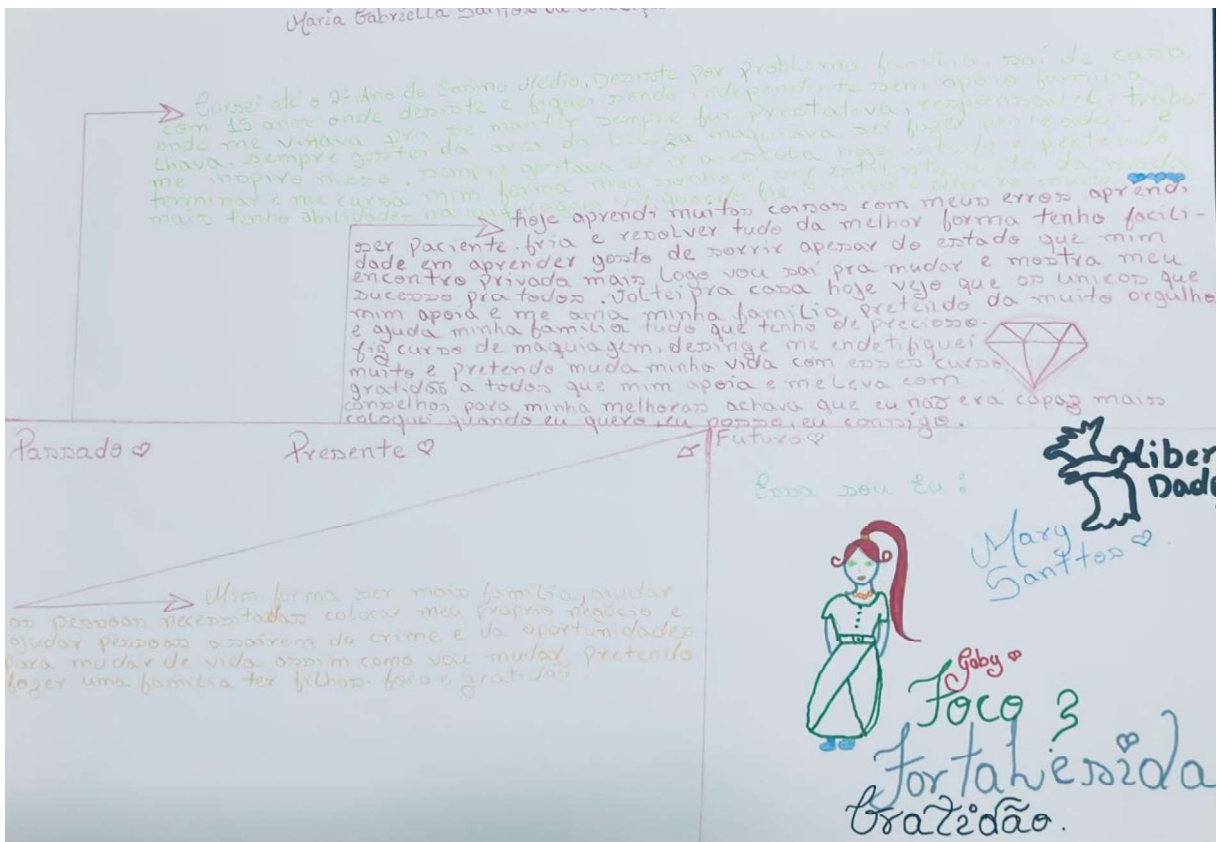 Maria Gabriella Santos da
Cursei até o 2º Ano do Ensino Médio, Desiste por problema família, sai de casa
com 15 anos onde desiste e fiquei sendo independente sem apoio família
onde me virava pra se manter sempre fui prestativa, responsável, traba-
lhava. Sempre gostei da area da beleza maquiava sei fazer penteado- e
me inspiro nisso, sempre gostava de ir a escola hoje estudo e pretendo
terminar e me cursa mim forma meu sonho é ser
mais tenho abilidades na
hoje aprendi muitas coisas com meus erros aprendi
ser paciente, fria e resolver tudo da melhor forma tenho facili-
dade em aprender gosto de sorrir apesar do estado que mim
encontro privada mais logo vou sai pra mudar e mostra meu
sucesso pra todos. Voltei pra casa hoje vejo que os unicos que
mim apoia e me ama minha família, pretendo da muito orgulho
e ajuda minha família tudo que tenho de precioso.
fiz curso de maquiagem, desinge me endetifiquei
muito e pretendo muda minha vida com esses curso.
gratidão a todos que mim apoia e me leva com
conselhos para minha melhoras achava que eu não era capaz mais
coloquei quando eu quero, eu posso, eu consigo.
Passado
Presente
Futuro
Essa sou Eu:
Liber
Dade
Mary
Santtos
Mim forma ser mais família, ajudar
as pessoas necessitadas colocar meu proprio negócio e
ajudar pessoas a sairem do crime e da oportunidades
para mudar de vida assim como vou mudar, pretendo
fazer uma família ter filhos. foco e gratidão.
Gaby
Foco
Fortalesida
Gratidão.